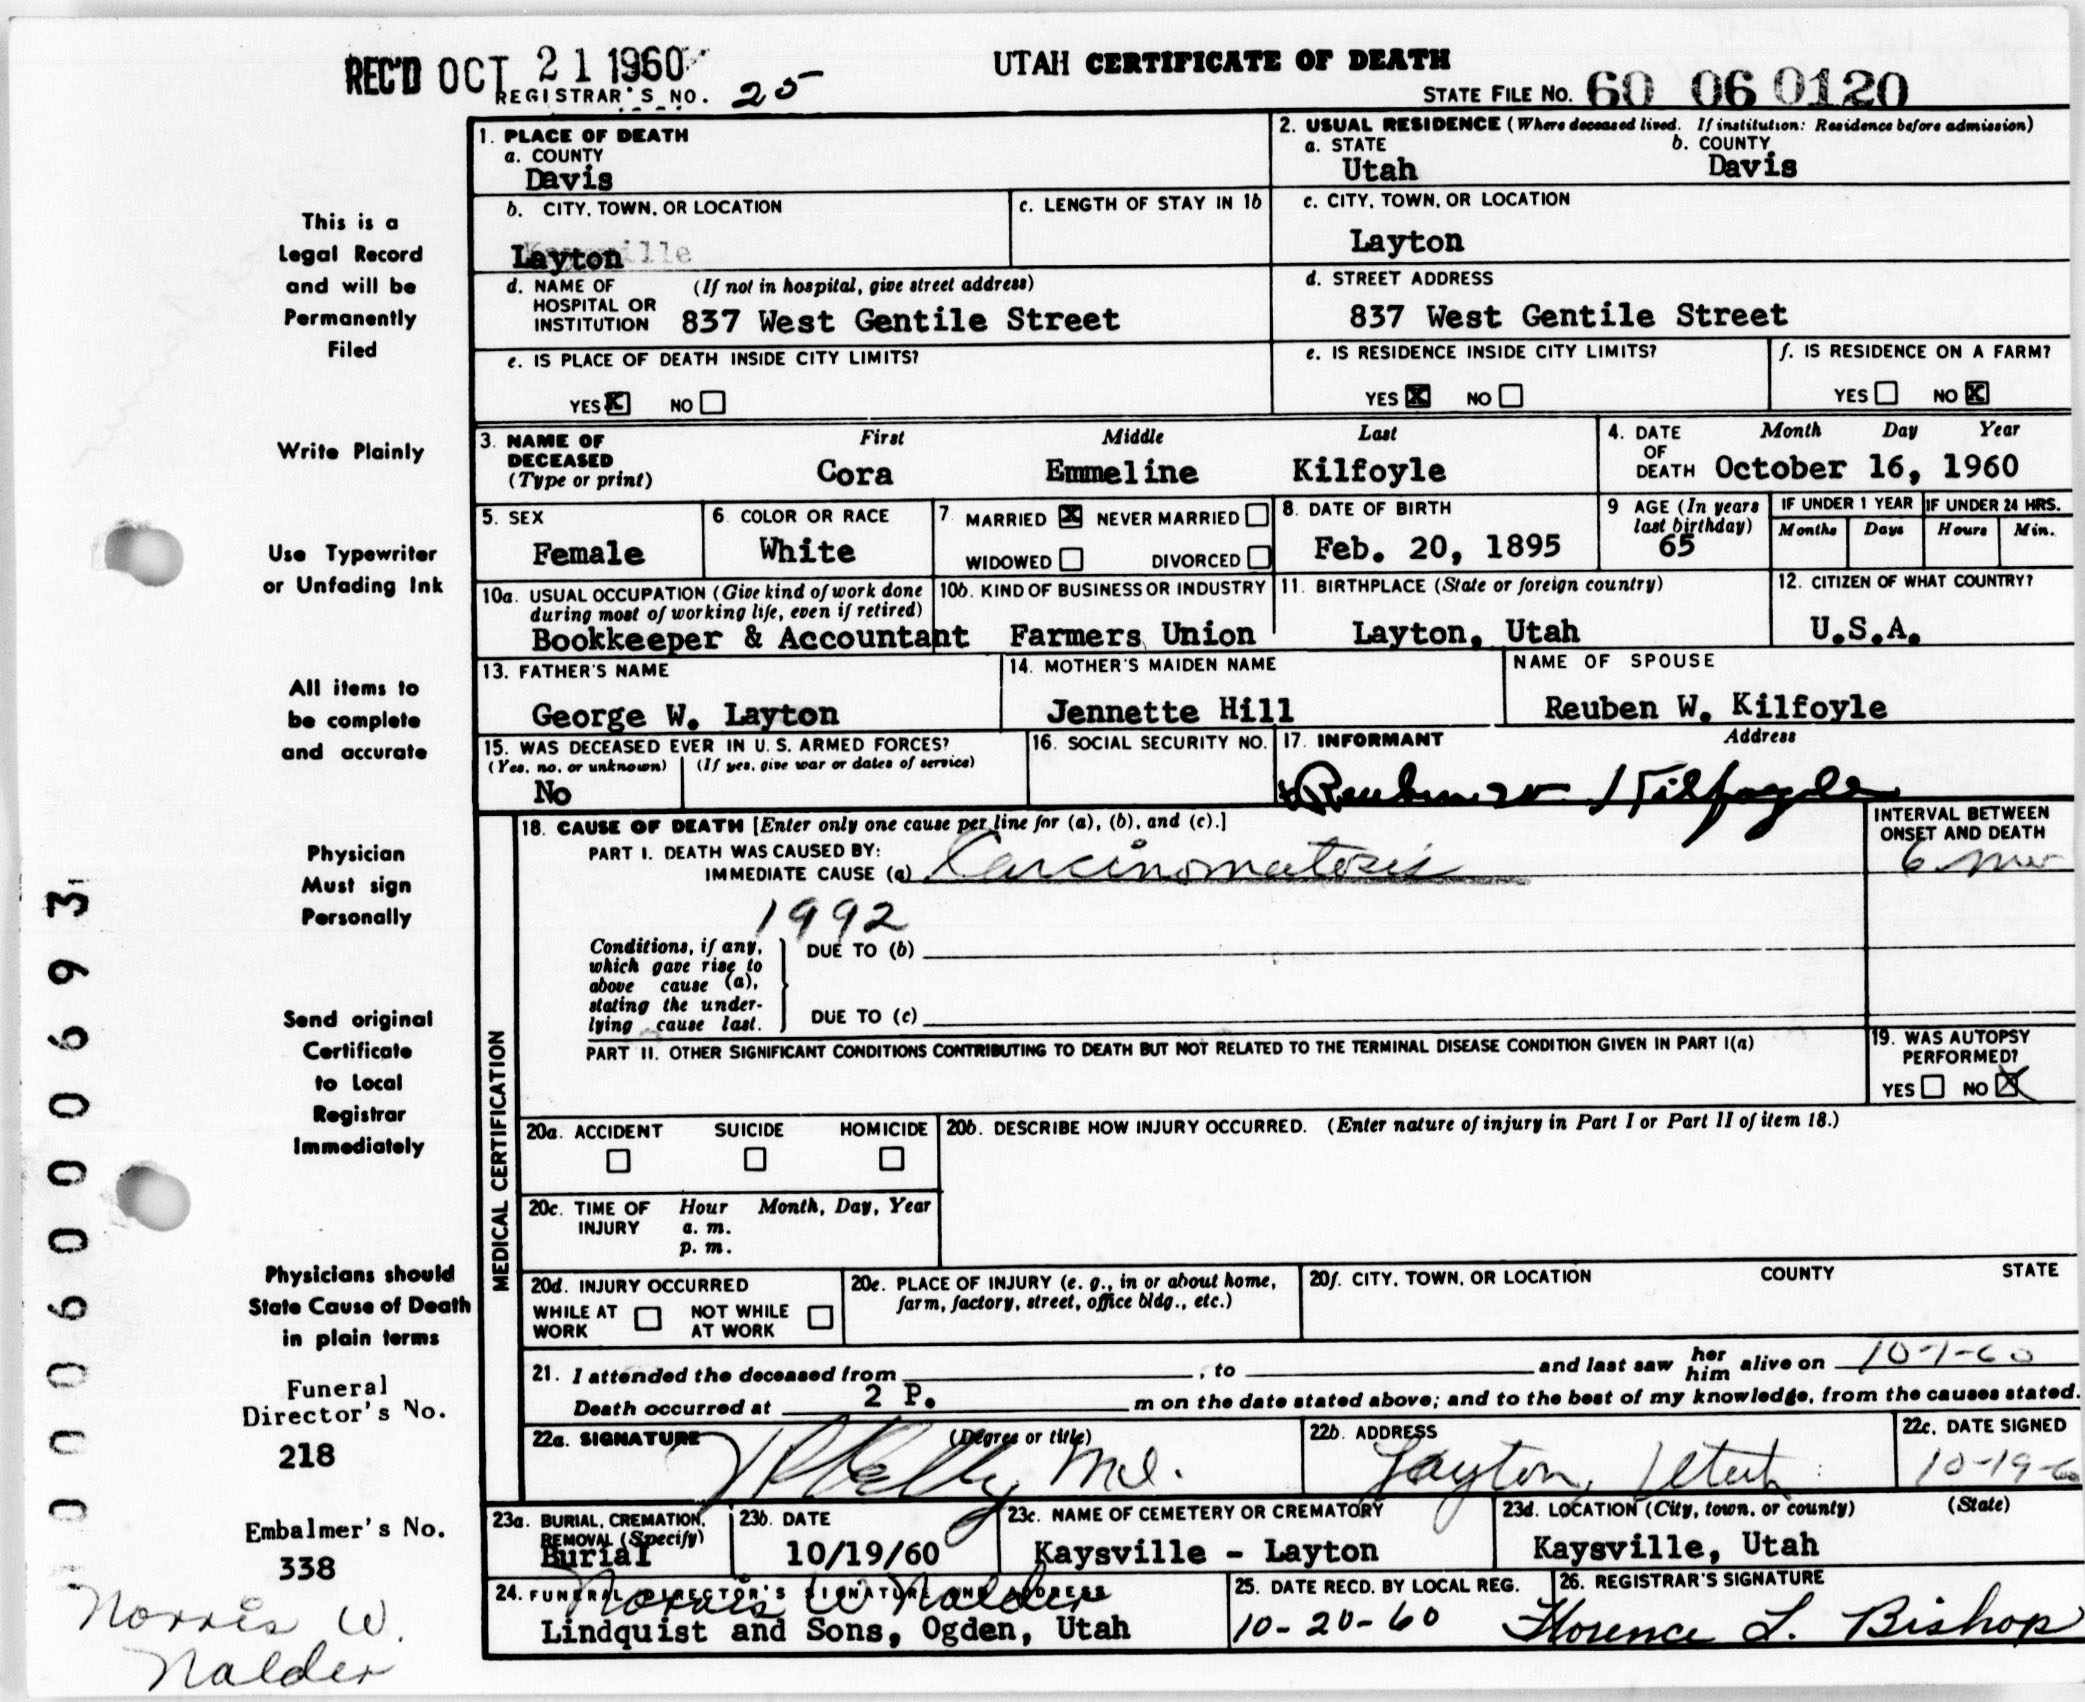 REC'D OCT 21 1960
UTAH CERTIFICATE OF DEATH
REGISTRAR'S NO. 25
STATE FILE NO. 60 06 0120
1. PLACE OF DEATH
a. COUNTY
Davis
2. USUAL RESIDENCE (Where deceased lived. If institution: Residence before admission)
a. STATE
Utah
b. COUNTY
Davis
b. CITY, TOWN, OR LOCATION
Layton
c. LENGTH OF STAY IN 1b
c. CITY, TOWN, OR LOCATION
Layton
d. NAME OF HOSPITAL OR INSTITUTION
(If not in hospital, give street address)
837 West Gentile Street
d. STREET ADDRESS
837 West Gentile Street
e. IS PLACE OF DEATH INSIDE CITY LIMITS?
YES X NO
e. IS RESIDENCE INSIDE CITY LIMITS?
YES X NO
f. IS RESIDENCE ON A FARM?
YES NO X
3. NAME OF DECEASED (Type or print)
First Middle Last
Cora Emmeline Kilfoyle
4. DATE OF DEATH
Month Day Year
October 16, 1960
5. SEX
Female
6. COLOR OR RACE
White
7. MARRIED X NEVER MARRIED
WIDOWED DIVORCED
8. DATE OF BIRTH
Feb. 20, 1895
9. AGE (In years last birthday)
65
IF UNDER 1 YEAR
Months Days
IF UNDER 24 HRS.
Hours Min.
10a. USUAL OCCUPATION (Give kind of work done during most of working life, even if retired)
Bookkeeper & Accountant
10b. KIND OF BUSINESS OR INDUSTRY
Farmers Union
11. BIRTHPLACE (State or foreign country)
Layton, Utah
12. CITIZEN OF WHAT COUNTRY?
U.S.A.
13. FATHER'S NAME
George W. Layton
14. MOTHER'S MAIDEN NAME
Jennette Hill
NAME OF SPOUSE
Reuben W. Kilfoyle
15. WAS DECEASED EVER IN U. S. ARMED FORCES?
(Yes, no, or unknown) (If yes, give war or dates of service)
No
16. SOCIAL SECURITY NO.
17. INFORMANT Address
Reuben W. Kilfoyle
MEDICAL CERTIFICATION
18. CAUSE OF DEATH [Enter only one cause per line for (a), (b), and (c).]
PART I. DEATH WAS CAUSED BY:
IMMEDIATE CAUSE (a) Carcinomatosis
INTERVAL BETWEEN ONSET AND DEATH
6 mo
1992
Conditions, if any, which gave rise to above cause (a), stating the underlying cause last.
DUE TO (b)
DUE TO (c)
PART II. OTHER SIGNIFICANT CONDITIONS CONTRIBUTING TO DEATH BUT NOT RELATED TO THE TERMINAL DISEASE CONDITION GIVEN IN PART I(a)
19. WAS AUTOPSY PERFORMED?
YES NO X
20a. ACCIDENT SUICIDE HOMICIDE
20b. DESCRIBE HOW INJURY OCCURRED. (Enter nature of injury in Part I or Part II of item 18.)
20c. TIME OF INJURY
Hour Month, Day, Year
a. m.
p. m.
20d. INJURY OCCURRED
WHILE AT WORK NOT WHILE AT WORK
20e. PLACE OF INJURY (e. g., in or about home, farm, factory, street, office bldg., etc.)
20f. CITY, TOWN, OR LOCATION COUNTY STATE
21. I attended the deceased from , to and last saw her him alive on 10-1-60
Death occurred at 2 P. m on the date stated above; and to the best of my knowledge, from the causes stated.
22a. SIGNATURE (Degree or title)
M.D.
22b. ADDRESS
Layton, Utah
22c. DATE SIGNED
10-19-60
23a. BURIAL, CREMATION, REMOVAL (Specify)
Burial
23b. DATE
10/19/60
23c. NAME OF CEMETERY OR CREMATORY
Kaysville - Layton
23d. LOCATION (City, town, or county) (State)
Kaysville, Utah
24. FUNERAL DIRECTOR'S SIGNATURE AND ADDRESS
Norris W Nalder
Lindquist and Sons, Ogden, Utah
25. DATE RECD. BY LOCAL REG.
10-20-60
26. REGISTRAR'S SIGNATURE
Florence L. Bishop
This is a
Legal Record
and will be
Permanently
Filed
Write Plainly
Use Typewriter
or Unfading Ink
All items to
be complete
and accurate
Physician
Must sign
Personally
Send original
Certificate
to Local
Registrar
Immediately
Physicians should
State Cause of Death
in plain terms
Funeral
Director's No.
218
Embalmer's No.
338
Norris W.
Nalder
0006000693